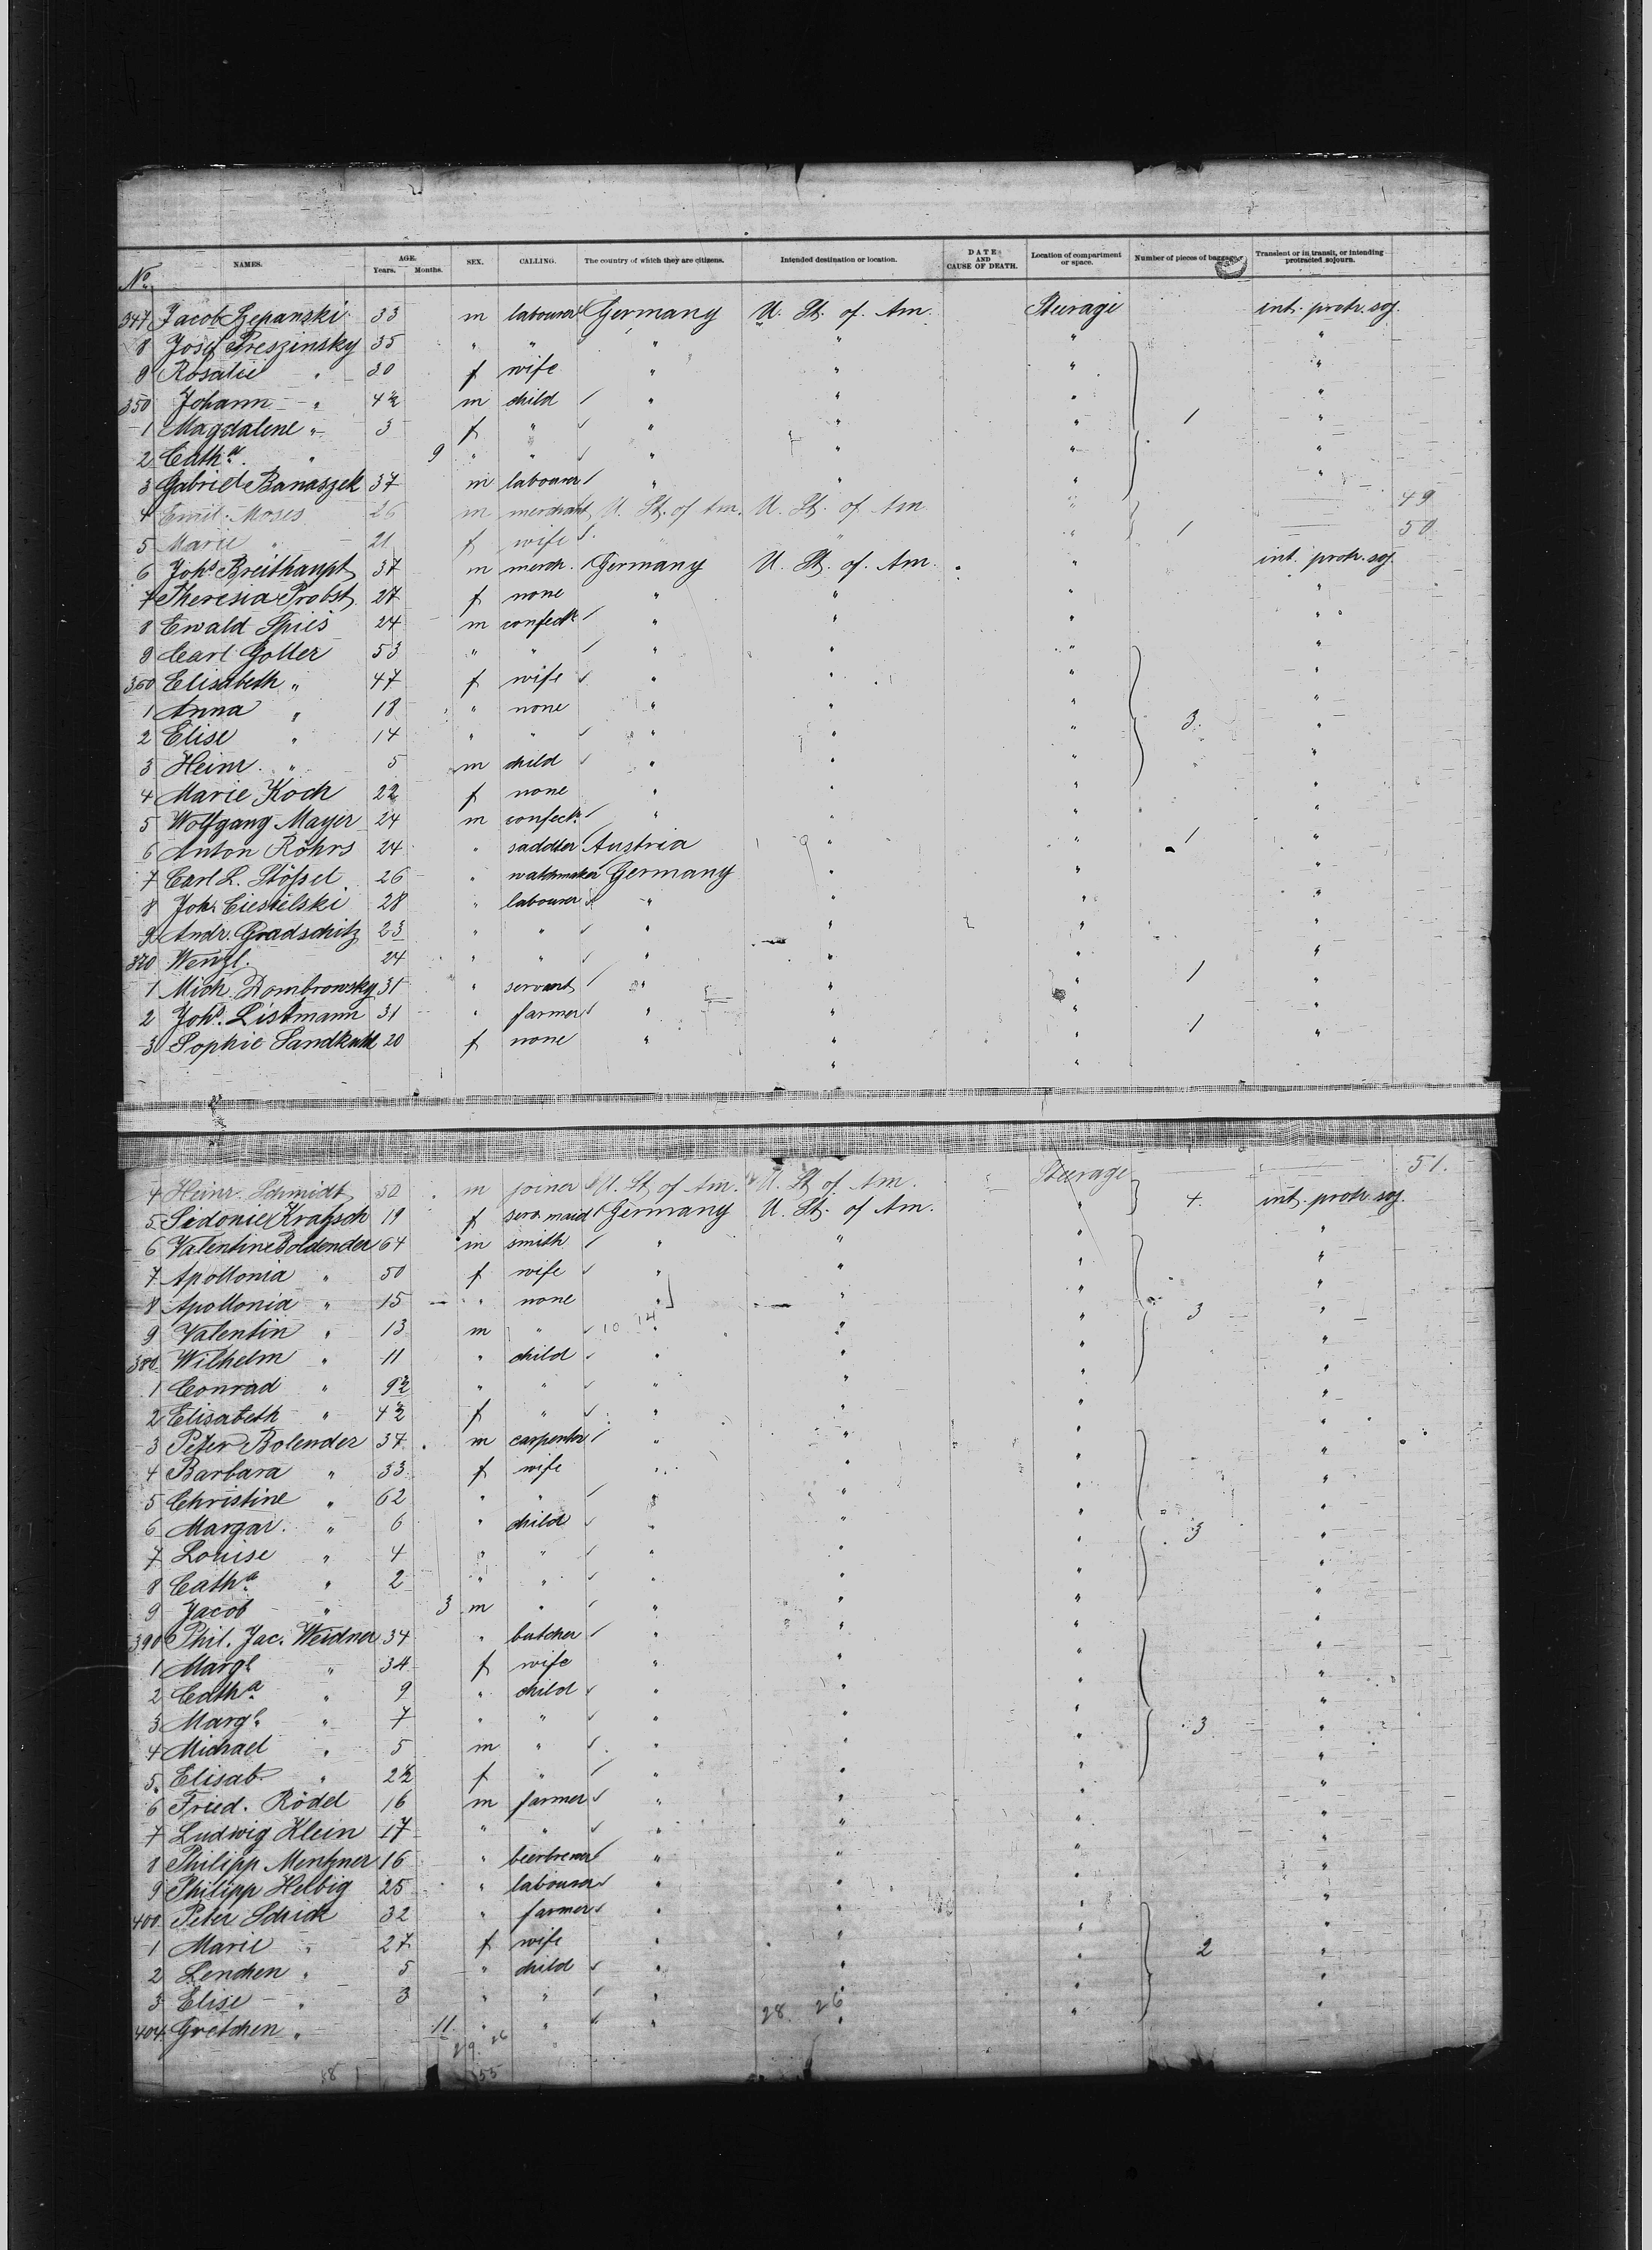 No. NAMES. AGE. Years. Months. SEX. CALLING. The country of which they are citizens. Intended destination or location. DATE AND CAUSE OF DEATH. Location of compartment or space. Number of pieces of baggage. Transient or in transit, or intending protracted sojourn.
347 Jacob Szepanski 33 m labourer Germany U. St. of Am. Steerage int. protr. soj.
8 Josef Preszinsky 35 " " " " " "
9 Rosalie " 30 f wife " " " "
350 Johann " 4½ m child " " " "
1 Magdalene " 3 f " " " " 1 "
2 Cath.a " 9 " " " " " "
3 Gabriel Banaszek 37 m labourer " " " "
4 Emil Moses 26 m merchant U. St. of Am. U. St. of Am " 49
5 Marie " 21 f wife " " " 1 50
6 Johs Breithaupt 37 m merch. Germany U. St. of Am. " int. protr. soj.
7 Theresia Probst 27 f none " " " "
8 Ewald Spies 24 m confectr " " " "
9 Carl Goller 53 " " " " " "
360 Elisabeth " 47 f wife " " " "
1 Anna " 18 " none " " " "
2 Elise " 14 " " " " " 3. "
3 Heinr. " 5 m child " " " "
4 Marie Koch 22 f none " " " "
5 Wolfgang Mayer 24 m confectr " " " "
6 Anton Röhrs 24 " saddler Austria " " 1 "
7 Carl L. Stössel 26 " watchmaker Germany " " "
8 Joh. Ciesielski 28 " labourer " " " "
9 Andr. Gradschitz 23 " " " " " "
370 Wenzl. 24 " " " " " "
1 Mich. Dombrowsky 31 " servant " " " 1 "
2 Johs. Listmann 31 " farmer " " " "
3 Sophie Sandkuhl 20 f none " " " 1 "
4 Heinr. Schmidt 50 m joiner U. St of Am. U. St of Am. Steerage 51.
5 Sidonie Kratzsch 19 f serv. maid Germany U. St. of Am. " 4. int. protr. soj.
6 Valentine Boldender 64 m smith " " " "
7 Apollonia " 50 f wife " " " "
8 Apollonia " 15 " none " " " "
9 Valentin " 13 m " 10 14 " " " 3 "
380 Wilhelm " 11 " child " " " "
1 Conrad " 9½ " " " " " "
2 Elisabeth " 4½ f " " " " "
3 Peter Bolender 37 m carpenter " " " "
4 Barbara " 33 f wife " " " "
5 Christine " 62 " " " " " "
6 Margar. " 6 " child " " " 3 "
7 Louise " 4 " " " " " "
8 Cath.a " 2 " " " " " "
9 Jacob " 3 m " " " " "
390 Phil. Jac. Weidner 34 " butcher " " " "
1 Marg. " 34 f wife " " " "
2 Cath.a " 9 " child " " " "
3 Marg. " 7 " " " " " 3 "
4 Michael " 5 m " " " " "
5. Elisab " 2½ f " " " " "
6 Fried. Rödel 16 m farmer " " " "
7 Ludwig Klein 17 " " " " " "
8 Philipp Mentzner 16 " beerbrewer " " " "
9 Philipp Helbig 25 " labourer " " " "
400 Peter Schick 32 " farmer " " " "
1 Marie " 27 f wife " " " 2 "
2 Lenchen " 5 " child " " " "
3 Elise " 3 " " " " " "
404 Gretchen " 11. " " " 28. 26 " " "
29. 26
18 55